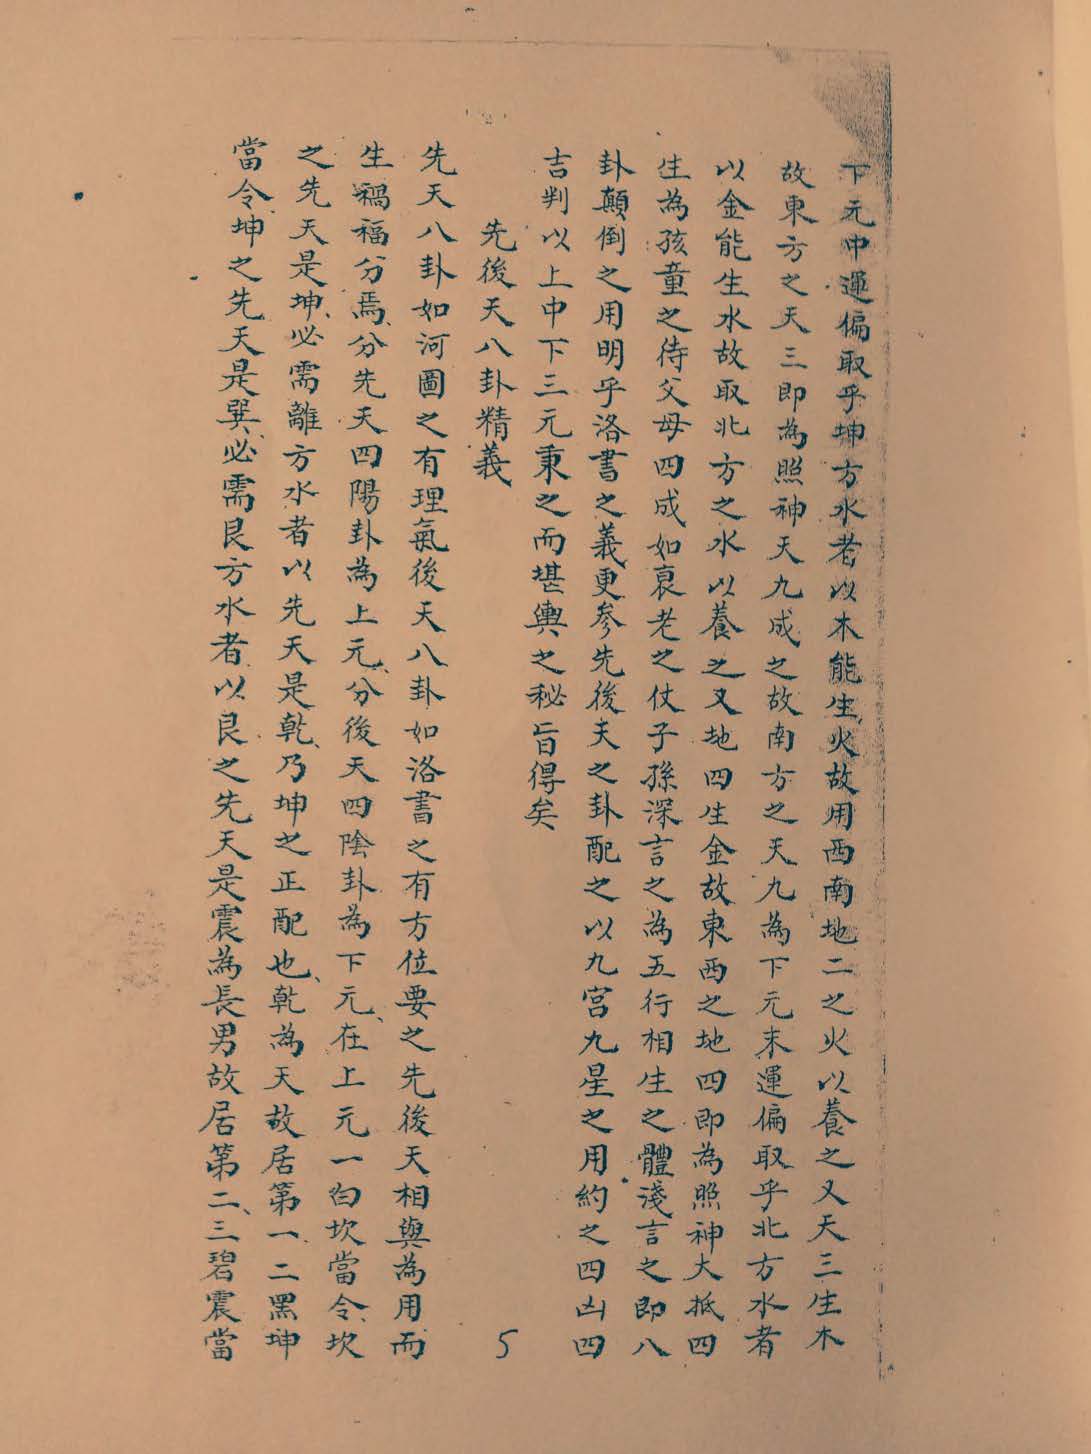 下元中運偏取乎坤方水老以木能生火故用西南地二之火以養之又天三生木
故東方之天三即為照神天九成之故南方之天九為下元末運偏取乎北方水者
以金能生水故取北方之水以養之又地四生金故東西之地四即為照神大抵四
生為孩童之待父母四成如衰老之仗子孫深言之為五行相生之體淺言之即八
卦顛倒之用明乎洛書之義更參先後天之卦配之以九宮九星之用約之四凶四
吉判以上中下三元秉之而堪輿之秘旨得矣
先後天八卦精義
5
先天八卦如河圖之有理氣後天八卦如洛書之有方位要之先後天相與為用而
生禍福分焉、分先天四陽卦為上元、分後天四陰卦為下元、在上元一白坎當令、坎
之先天是坤、必需離方水者以先天是乾、乃坤之正配也、乾為天故居第一二黑坤
當令、坤之先天是巽、必需艮方水者、以艮之先天是震為長男故居第二、三碧震當